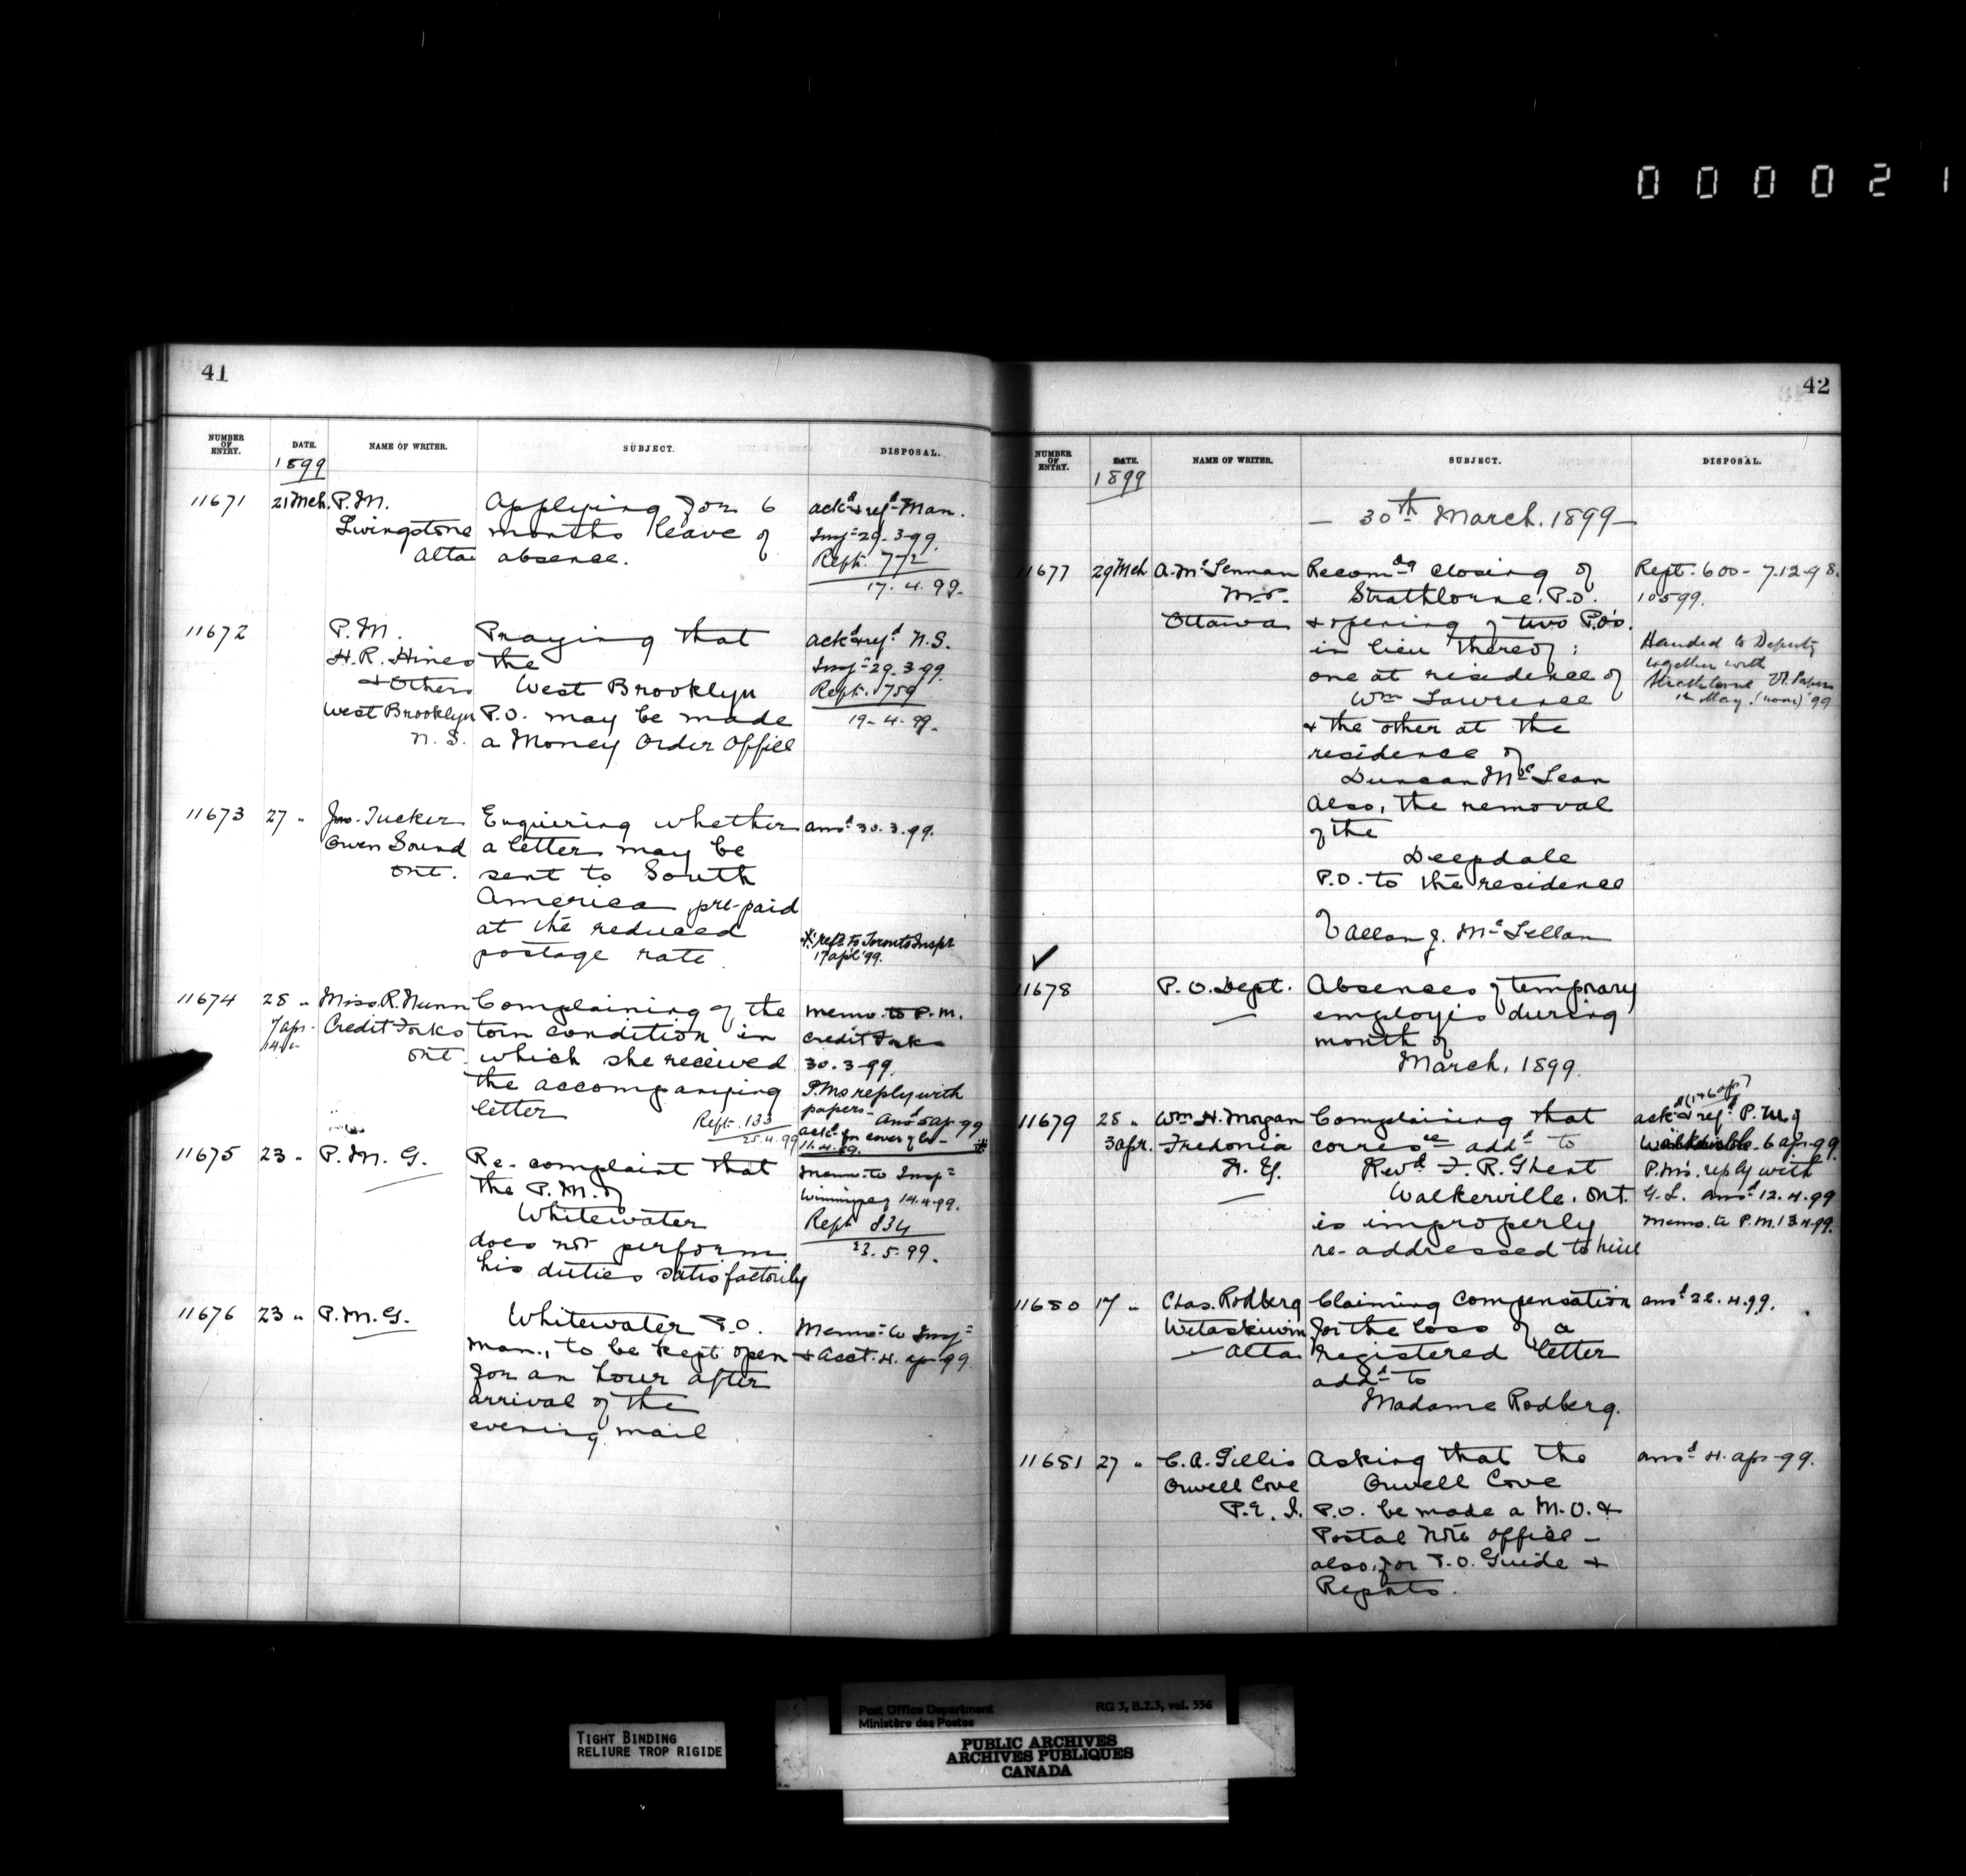 000021
41
NUMBER OF ENTRY. DATE. NAME OF WRITER. SUBJECT. DISPOSAL.
1899
11671 21 Mch. P.M. Applying for 6 ackd & refd Man.
Livingstone months leave of Insp 29-3-99.
Alta absence. Rept. 772
17.4.99.
11672 P.M. Praying that ackd & refd N.S.
H.R. Hines the Insp 29.3.99.
& Others West Brooklyn Rept. 759
West Brooklyn P.O. may be made 19-4-99.
N.S. a Money Order Office
11673 27 " Jno. Tucker Enquiring whether ansd 30.3.99.
Owen Sound a letter may be
Ont. sent to South
America, pre-paid
at the reduced
postage rate.
* refd to Toronto Inspr
17 apl '99.
11674 28 " Miss R. Nunn Complaining of the memo. to P.M.
7 apr. Credit Forks torn condition in Credit Forks
14 " Ont. which she received 30.3-99.
the accompanying P.Ms reply with
letter papers- Ansd 5 ap-99
Rept. 133 ackd for cover of
25.4.99 11.4.99. *
11675 23 " P.M.G. Re- complaint that Memo. to Insp
the P.M. of Winnipeg 14.4.99.
Whitewater Rept 834
does not perform 23.5.99.
his duties satisfactorily
11676 23 " P.M.G. Whitewater P.O. Memo to Insp
Man., to be kept open & Acct. 4. ap-99.
for an hour after
arrival of the
evening mail
42
NUMBER OF ENTRY. DATE. NAME OF WRITER. SUBJECT. DISPOSAL.
1899
— 30th March. 1899 —
11677 29 Mch A. McLennan Recomdg closing of Rept. 600- 7.12-98.
M.P. Strathlorne. P.O. 10599.
Ottawa & opening of two P.O's.
in lieu thereof: Handed to Deputy
one at residence of together with
Wm Lawrence Strathlorne
& the other at the May. (noon) '99
residence of
Duncan McLean
Also, the removal
of the
Deepdale
P.O. to the residence
of Allan J. McLellan
✓
11678 P.O. Dept. Absences of temporary
employés during
month of
March, 1899.
11679 28 " Wm H. Morgan Complaining that ackd & refd P.M. of
3 apr. Fredonia corresce addd to Walkerville. 6 ap-99.
N.Y. Revd F.R. Ghent P.M's. reply with
Walkerville, Ont. G.L. ansd 12.4.99
is improperly memo. to P.M. 13.4.99.
re-addressed to him
11680 17 " Chas. Rodberg Claiming compensation ansd 22.4.99.
Wetaskiwin for the loss of a
Alta registered letter
addd to
Madame Rodberg.
11681 27 " C.A. Gillis Asking that the ansd 4. ap-99.
Orwell Cove Orwell Cove
P.E.I. P.O. be made a M.O. &
Postal Note office -
also, for P.O. Guide &
Reports.
Post Office Department RG 3, B.2.3, vol. 556
Ministère des Postes
TIGHT BINDING
RELIURE TROP RIGIDE
PUBLIC ARCHIVES
ARCHIVES PUBLIQUES
CANADA